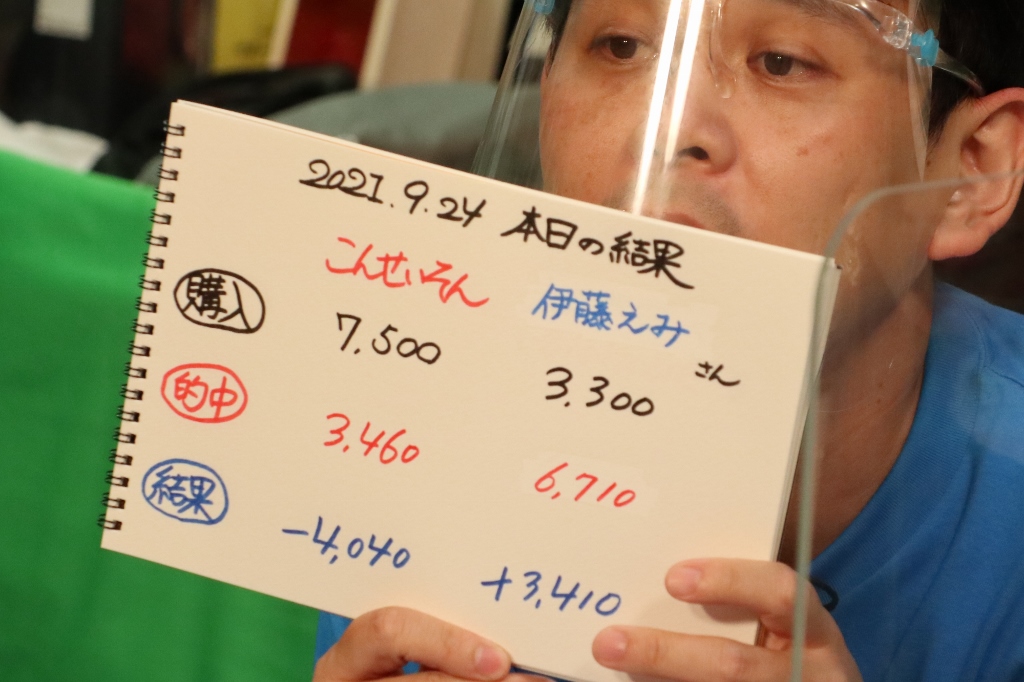 2021.9.24 本日の結果
こんせいそん 伊藤えみさん
購入 7,500 3,300
的中 3,460 6,710
結果 -4,040 +3,410